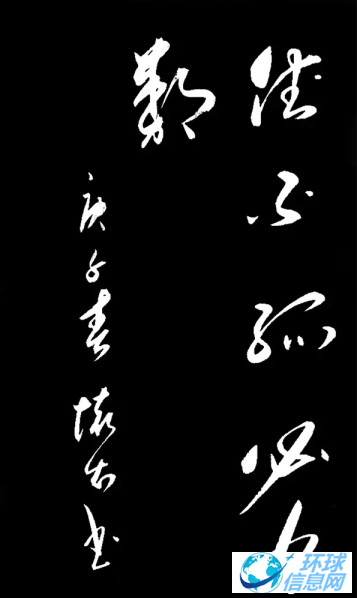 德不孤必有
鄰
庚子春懷书
环球
信息网